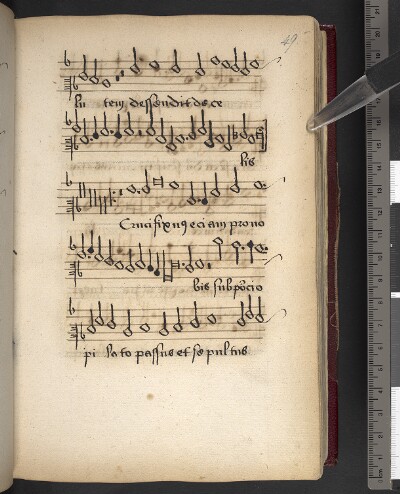 49
lu tem dessendit de ce
lis
Crucifixus eciam pro no
bis sub pocio
pi lato passus et sepultus